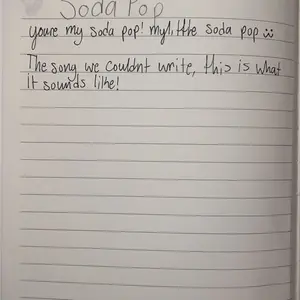 Soda Pop
youre my soda pop! my little soda pop
The song we couldnt write, this is what
it sounds like!